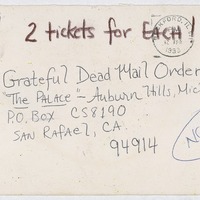 2 tickets for EACH!
Grateful Dead Mail Order
"The PALACE" - Auburn Hills, Mic
P.O. Box CS8190
SAN RAFAEL, CA.
94914
1993